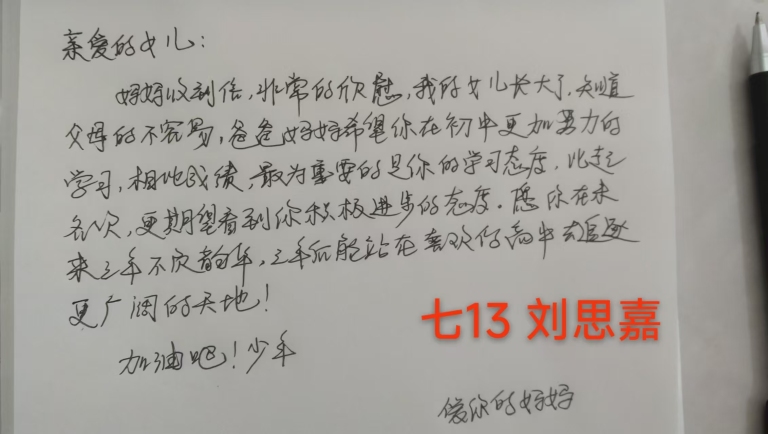 亲爱的女儿：
妈妈收到信，非常的欣慰，我的女儿长大了，知道
父母的不容易，爸爸妈妈希望你在初中更加努力的
学习，相比成绩，最为重要的是你的学习态度，比起
名次，更期望看到你积极进步的态度。愿你在未
来三年不负韶华，三年后能站在喜欢的高中去追逐
更广阔的天地！
加油吧！少年
爱你的妈妈
七13 刘思嘉